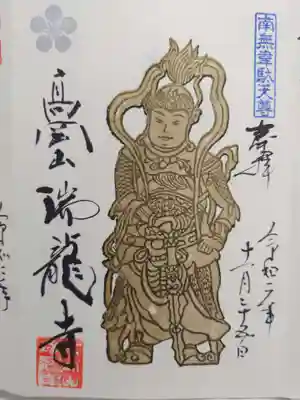 南無韋駄天尊
奉拝
令和二年
十一月二十五日
高岡山 瑞龍寺